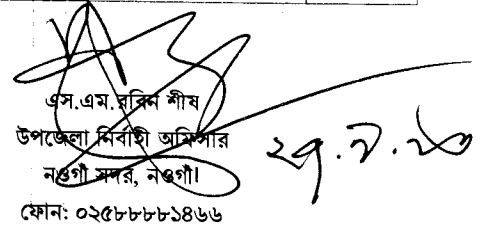 এস.এম.রবিন শীষ
উপজেলা নির্বাহী অফিসার
নওগাঁ সদর, নওগাঁ।
ফোন: ০২৫৮৮৮৮১৪৬৬